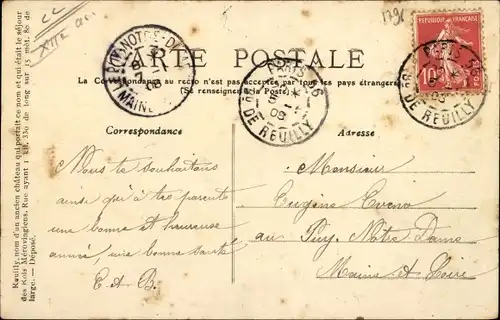 CARTE POSTALE
La Correspondance au recto n'est pas acceptée par tous les pays étrangers
(Se renseigner à la Poste)
Correspondance
Adresse
RÉPUBLIQUE FRANÇAISE
10
PARIS
R. DE REUILLY
PARIS
R. DE REUILLY
NOTRE-DAME
Nous te souhaitons
ainsi qu'à tes parents
une bonne et heureuse
année, une bonne santé
E. A. B.
Monsieur
Eugène
au Puy Notre Dame
Maine et Loire
Reuilly, nom d'un ancien château qui portait ce nom et qui était le séjour
des Rois Mérovingiens. Rue ayant 1 kil. 330 de long sur 15 mèt. 80 de
large. — Déposé.
XIIe arr.